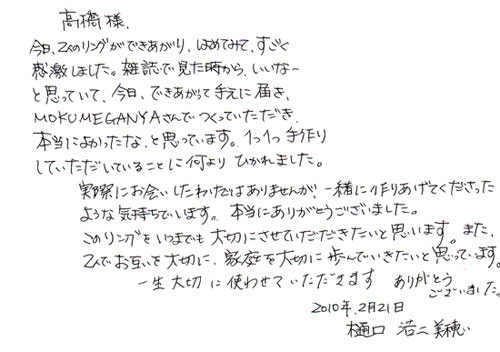 高橋様、
今日、このリングができあがり、はめてみて、すごく
感激しました。雑誌で見た時から、いいなー
と思っていて、今日、できあがって手元に届き、
MOKUMEGANYAさんでつくっていただき、
本当によかったな、と思っています。1つ1つ手作り
していただいていることに何よりひかれました。
実際にお会いしたわけではありませんが、一緒に作りあげてくださった
ような気持ちでいます。本当にありがとうございました。
このリングをいつまでも大切にさせていただきたいと思います。また、
2人でお互いを大切に、家庭を大切に歩んでいきたいと思っています。
一生大切に使わせていただきます ありがとう
ございました。
2010年.2月21日
樋口 浩二 美穂